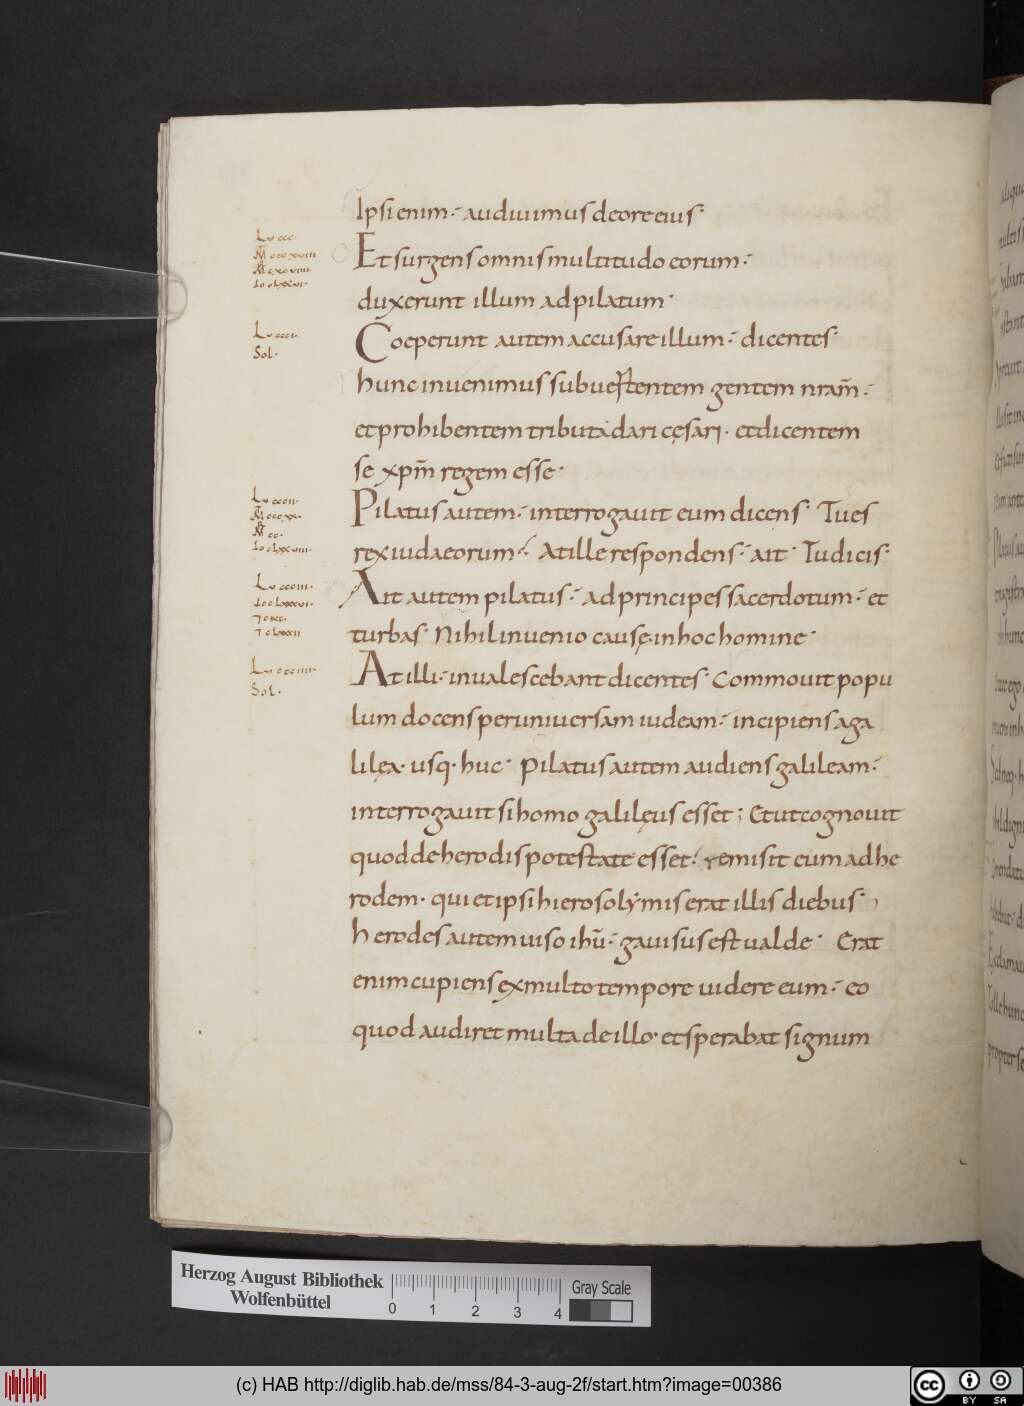 Ipsi enim· audiuimus de ore eius·
Et surgens omnis multitudo eorum·
duxerunt illum ad pilatum·
Coeperunt autem accusare illum· dicentes·
hunc inuenimus subuertentem gentem nram̄·
et prohibentem tributa dari cęsari· et dicentem
se xpm̄ regem esse·
Pilatus autem· interrogauit eum dicens· Tu es
rex iudaeorum· At ille respondens· ait· Tu dicis·
Ait autem pilatus· ad principes sacerdotum· et
turbas· Nihil inuenio causę in hoc homine·
At illi· inualescebant dicentes· Commouit popu
lum docens per uniuersam iudeam· incipiens a ga
lilęa· usq· huc· Pilatus autem audiens galileam·
interrogauit si homo galilęus esset; Et ut cognouit
quod de herodis potestate esset· remisit eum ad he
rodem· qui et ipsi hierosolymis erat illis diebus·
herodes autem uiso ihū· gauisus est ualde· Erat
enim cupiens ex multo tempore uidere eum· eo
quod audiret multa de illo· et sperabat signum
Lu ccc·
Lu ccci·
Sol·
Lu cccii·
Lu ccciii·
Lu ccciiii·
Sol·
Herzog August Bibliothek
Wolfenbüttel
0 1 2 3 4
Gray Scale
(c) HAB http://diglib.hab.de/mss/84-3-aug-2f/start.htm?image=00386
cc BY SA